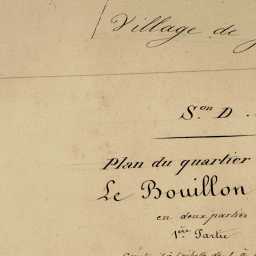 Village de
S.on D.
Plan du quartier
Le Bouillon
en deux parties
1ère Partie